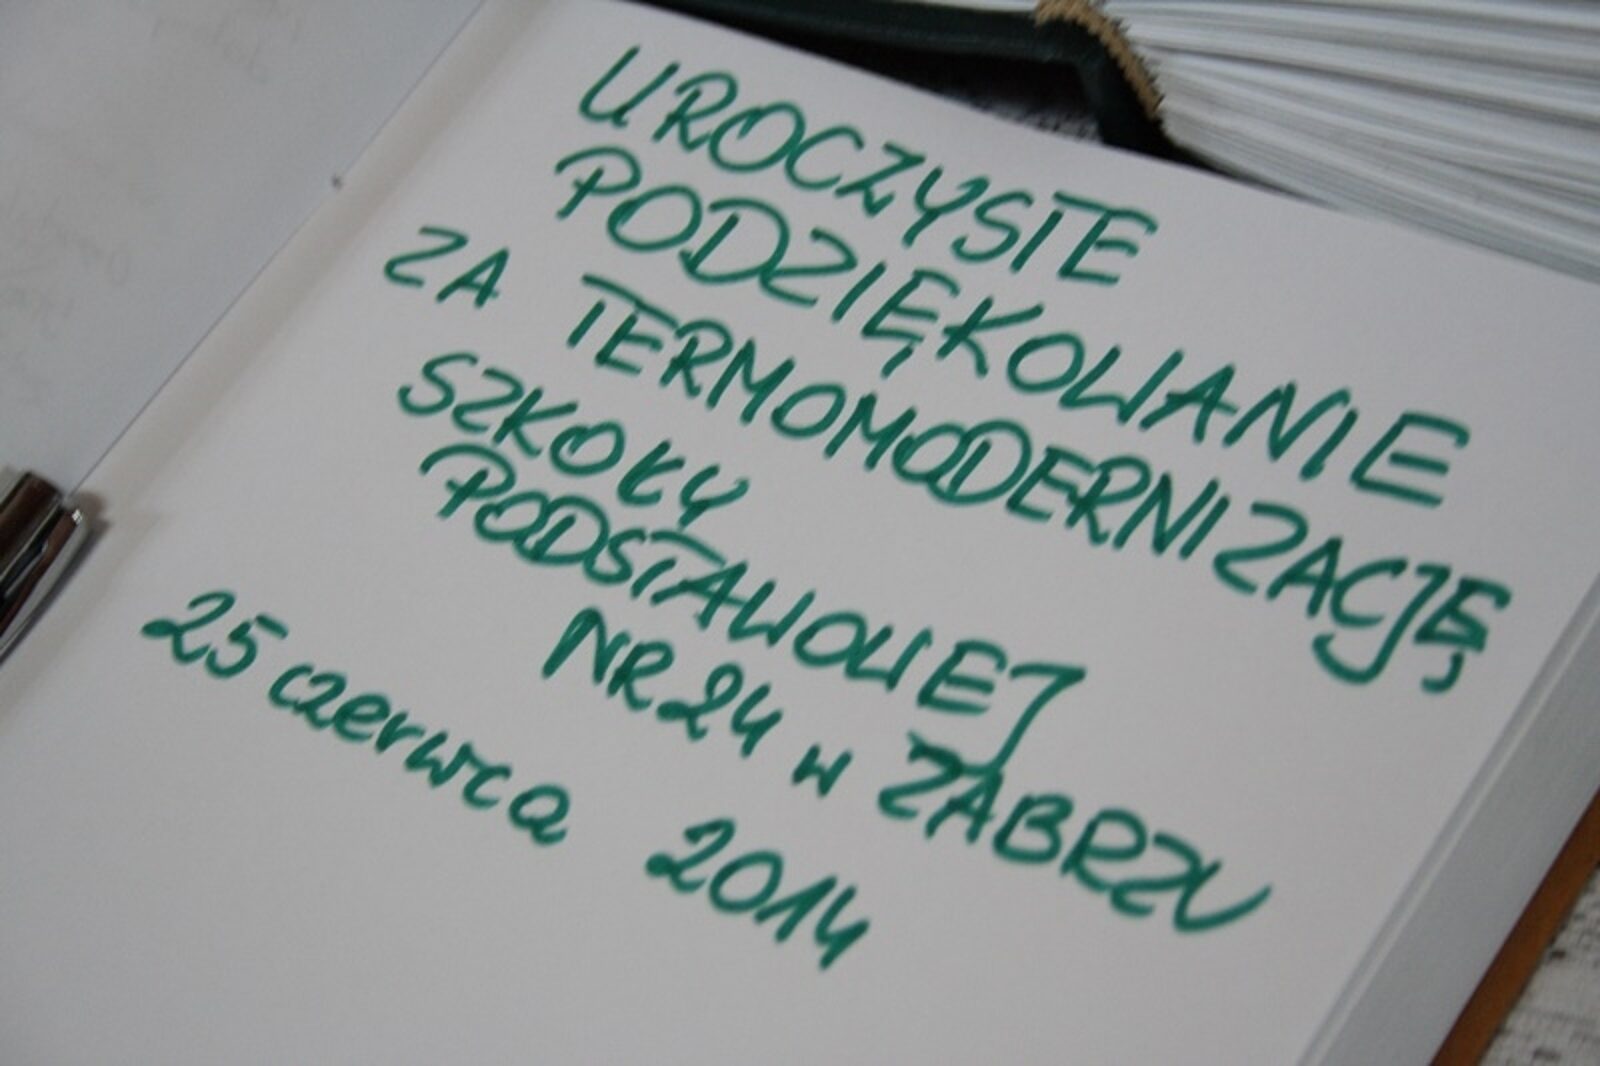 UROCZYSTE
PODZIĘKOWANIE
ZA TERMOMODERNIZACJĘ
SZKOŁY
PODSTAWOWEJ
NR 24 w ZABRZU
25 czerwca 2014